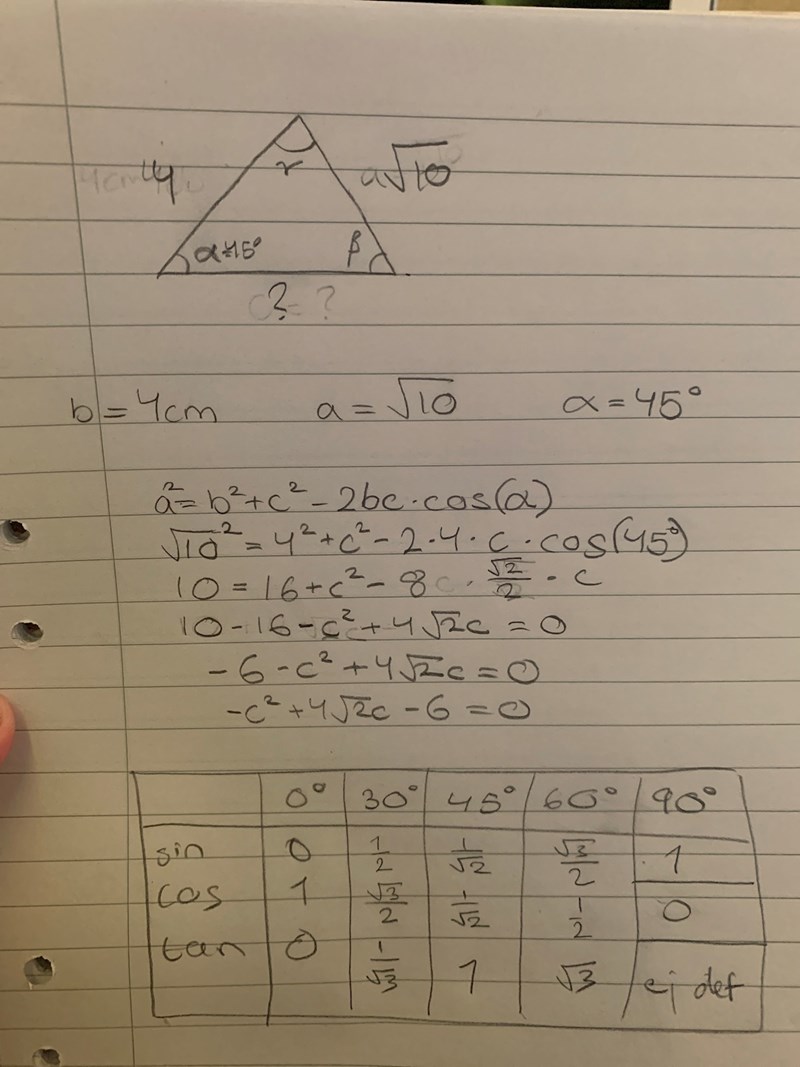 4 γ a√10
α=45° β
c=?
b = 4cm a = √10 α = 45°
a² = b² + c² - 2bc · cos(α)
√10² = 4² + c² - 2 · 4 · c · cos(45°)
10 = 16 + c² - 8 · √2/2 · c
10 - 16 - c² + 4√2c = 0
-6 - c² + 4√2c = 0
-c² + 4√2c - 6 = 0
0° 30° 45° 60° 90°
sin 0 1/2 1/√2 √3/2 1
cos 1 √3/2 1/√2 1/2 0
tan 0 1/√3 1 √3 ej def